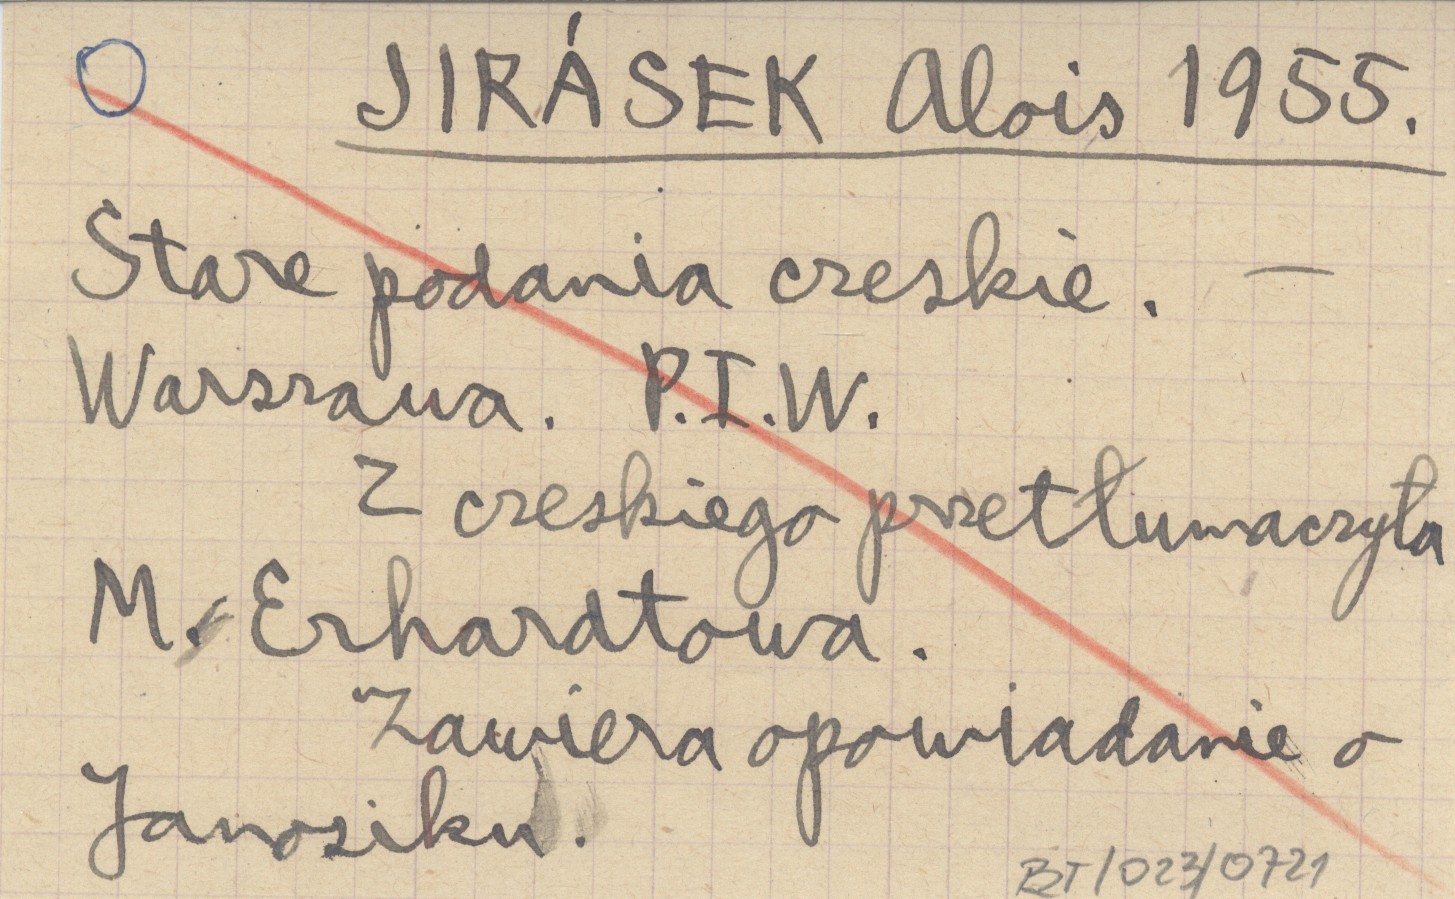 JIRÁSEK Alois 1955.
Stare podania czeskie. —
Warszawa. P.I.W.
Z czeskiego przetłumaczyła
M. Erhardtowa.
Zawiera opowiadanie o
Janosiku.
BT/023/0721